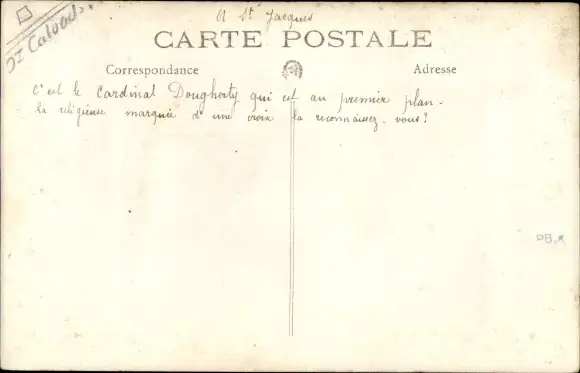 A St Jacques
CARTE POSTALE
Correspondance
Adresse
C'est le Cardinal Dougherty qui est au premier plan.
La religieuse marquée d'une croix la reconnaissez-vous?
Calvados
DB.